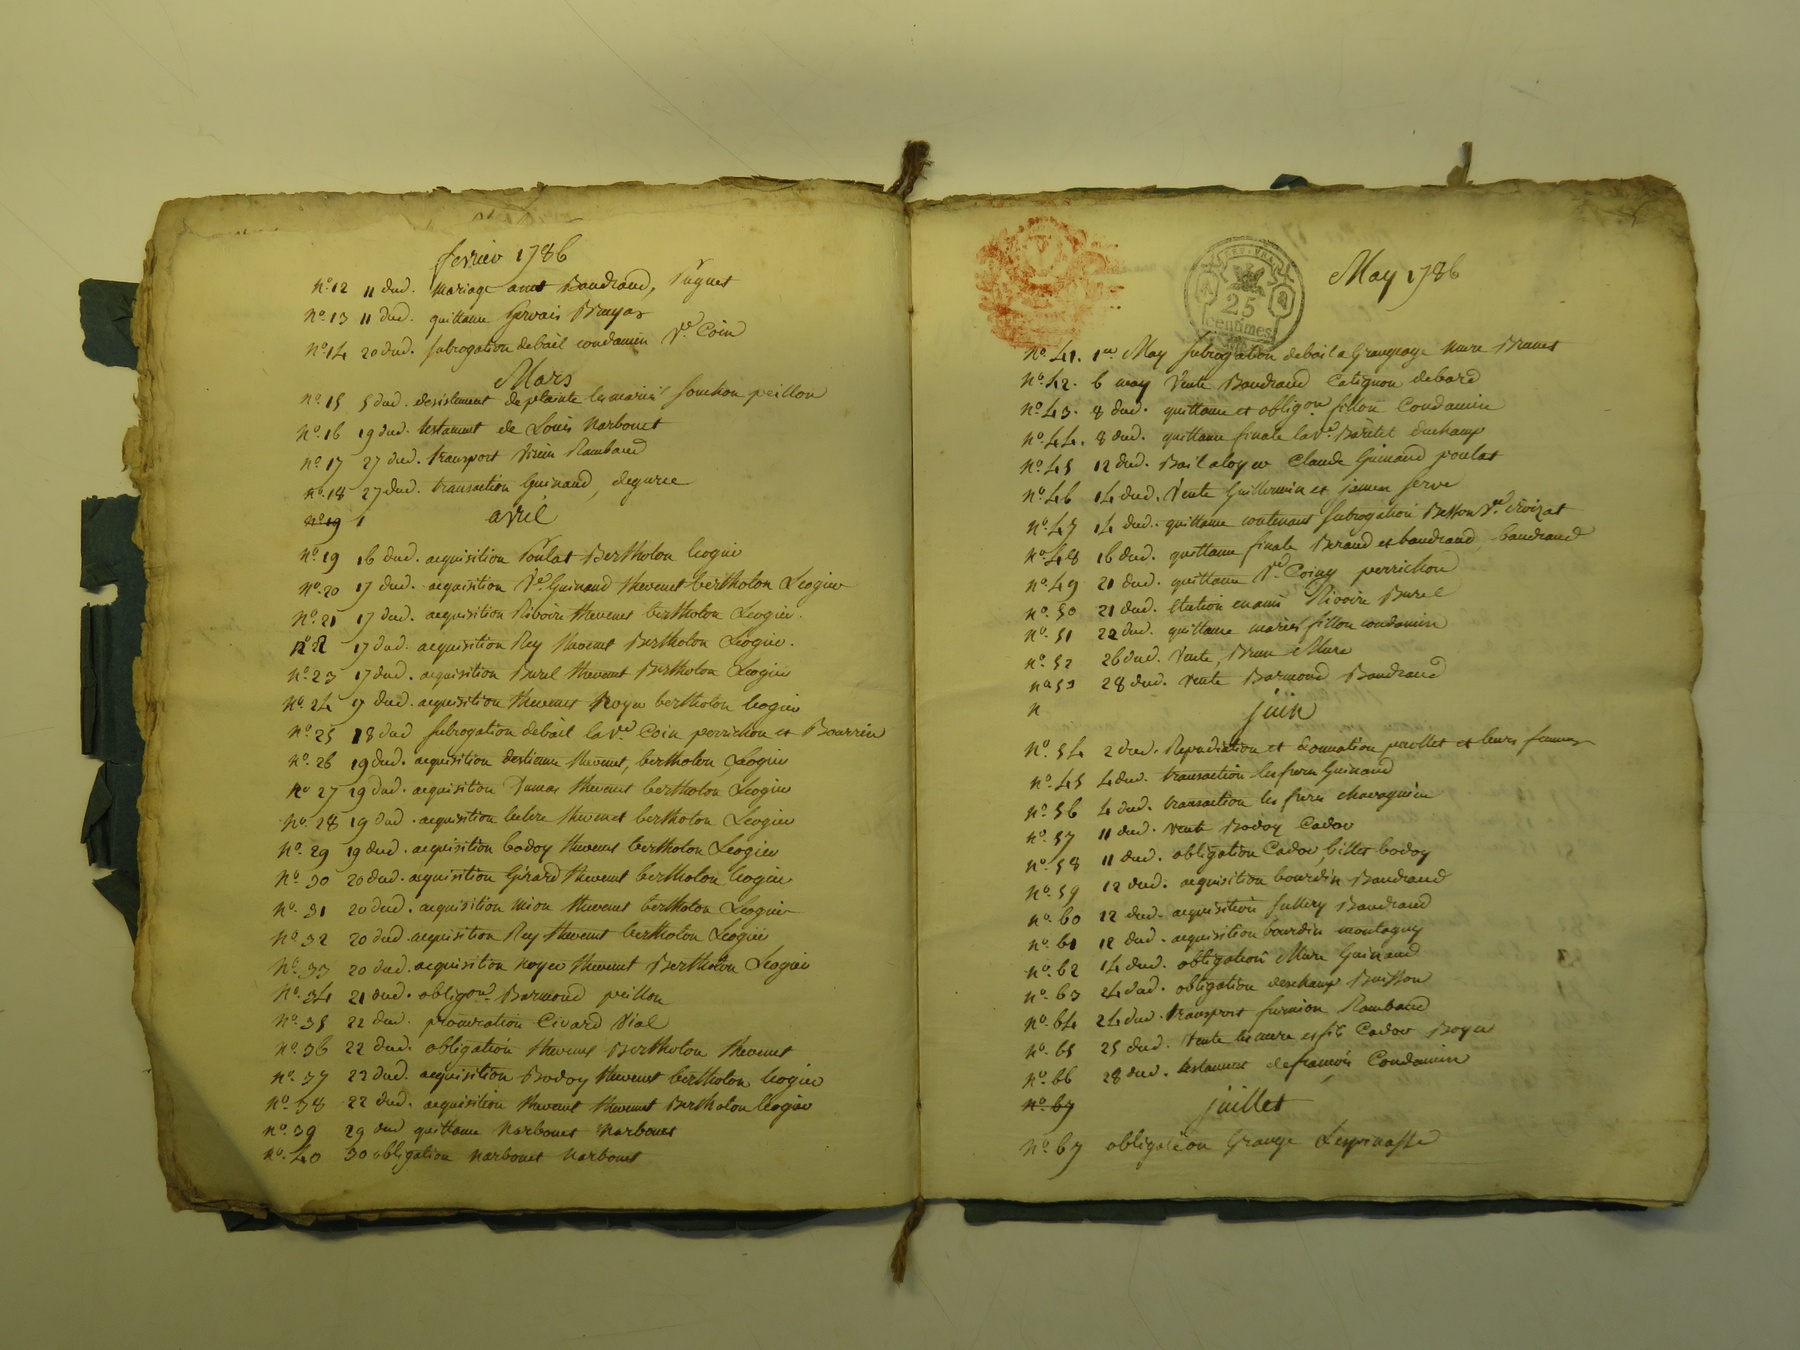 fevrier 1786
n.º 12 11 dud. mariage Baudrand, Pugnet
n.º 13 11 dud. quittance Gervais Bruyas
n.º 14 20 dud. subrogation de bail condamin Ve. Coin
Mars
n.º 15 5 dud. desistement de plainte les mariés souchon peillon
n.º 16 19 dud. testament de Louis Narbonet
n.º 17 27 dud. transport Rambaud
n.º 18 27 dud. transaction Guinand, degurie
n.º 19 1 avril
n.º 19 16 dud. acquisition Poulat Bertholon Leogier
n.º 20 17 dud. acquisition Ve. Guinand thevenet bertholon Leogier
n.º 21 17 dud. acquisition Rivoire thevenet bertholon Leogier.
n.º 22 17 dud. acquisition Rey thevenet Bertholon Leogier.
n.º 23 17 dud. acquisition Burel thevenet Bertholon Leogier
n.º 24 17 dud. acquisition thevenet Royer bertholon leogier
n.º 25 18 dud subrogation de bail la Ve. Coin perrichon et Bourrin
n.º 26 19 dud. acquisition destienne thevenet, bertholon Leogier
n.º 27 19 dud. acquisition Dumas thevenet bertholon Leogier
n.º 28 19 dud. acquisition thevenet bertholon Leogier
n.º 29 19 dud. acquisition bodoy thevenet bertholon Leogier
n.º 30 20 dud. acquisition Girard thevenet bertholon leogier
n.º 31 20 dud. acquisition mion thevenet bertholon Leogier
n.º 32 20 dud. acquisition Rey thevenet bertholon Leogier
n.º 33 20 dud. acquisition noyer thevenet Bertholon Leogier
n.º 34 21 dud. obligon. Barmond peillon
n.º 35 22 dud. procuration Civard Vial
n.º 36 22 dud. obligation thevenet Bertholon thevenet
n.º 37 22 dud. acquisition Bodoy thevenet bertholon leogier
n.º 38 22 dud. acquisition thevenet thevenet Bertholon leogier
n.º 39 29 dud quittance narbonet narbonet
n.º 40 30 obligation narbonet narbonet
25
centimes
May 1786
n.º 41. 1er May subrogation de bail a Grangeage mure Brunet
n.º 42. 6 may Vente Baudrand Catignon debard
n.º 43. 8 dud. quittance et obligon fillon Condamin
n.º 44. 8 dud. quittance finale la Ve. Baritel duchamp
n.º 45 12 dud. Bail a loyer Claude Guinand poulat
n.º 46 14 dud. Vente Guillermin et serve
n.º 47 14 dud. quittance contenant subrogation Besson Ve.
n.º 48 16 dud. quittance finale Beraud et baudrand, baudrand
n.º 49 21 dud. quittance Ve. Coing perrichon
n.º 50 21 dud. Rivoire Burel
n.º 51 22 dud. quittance mariés fillon condamin
n.º 52 26 dud. Vente, Brun Mure
n.º 53 28 dud. Vente Barmond Baudrand
n juin
n.º 54 2 dud. Repudiation et donnation paollet et leurs femmes
n.º 45 4 dud. transaction les freres Guinand
n.º 56 4 dud. transaction les freres chavagnieu
n.º 57 11 dud. Vente Bodoy Cador
n.º 58 11 dud. obligation Cador, Gillet bodoy
n.º 59 12 dud. acquisition bourdin Baudrand
n.º 60 12 dud. acquisition Baudrand
n.º 61 12 dud. acquisition bourdin montagny
n.º 62 14 dud. obligation Mure Guinand
n.º 63 24 dud. obligation deschamp Buisson
n.º 64 24 dud. transport furnion Rambaud
n.º 65 25 dud. Vente les mere et fils Cador Boyer
n.º 66 28 dud. testament de françois Condamin
n.º 67 juillet
n.º 67 obligation Grange Lespinasse